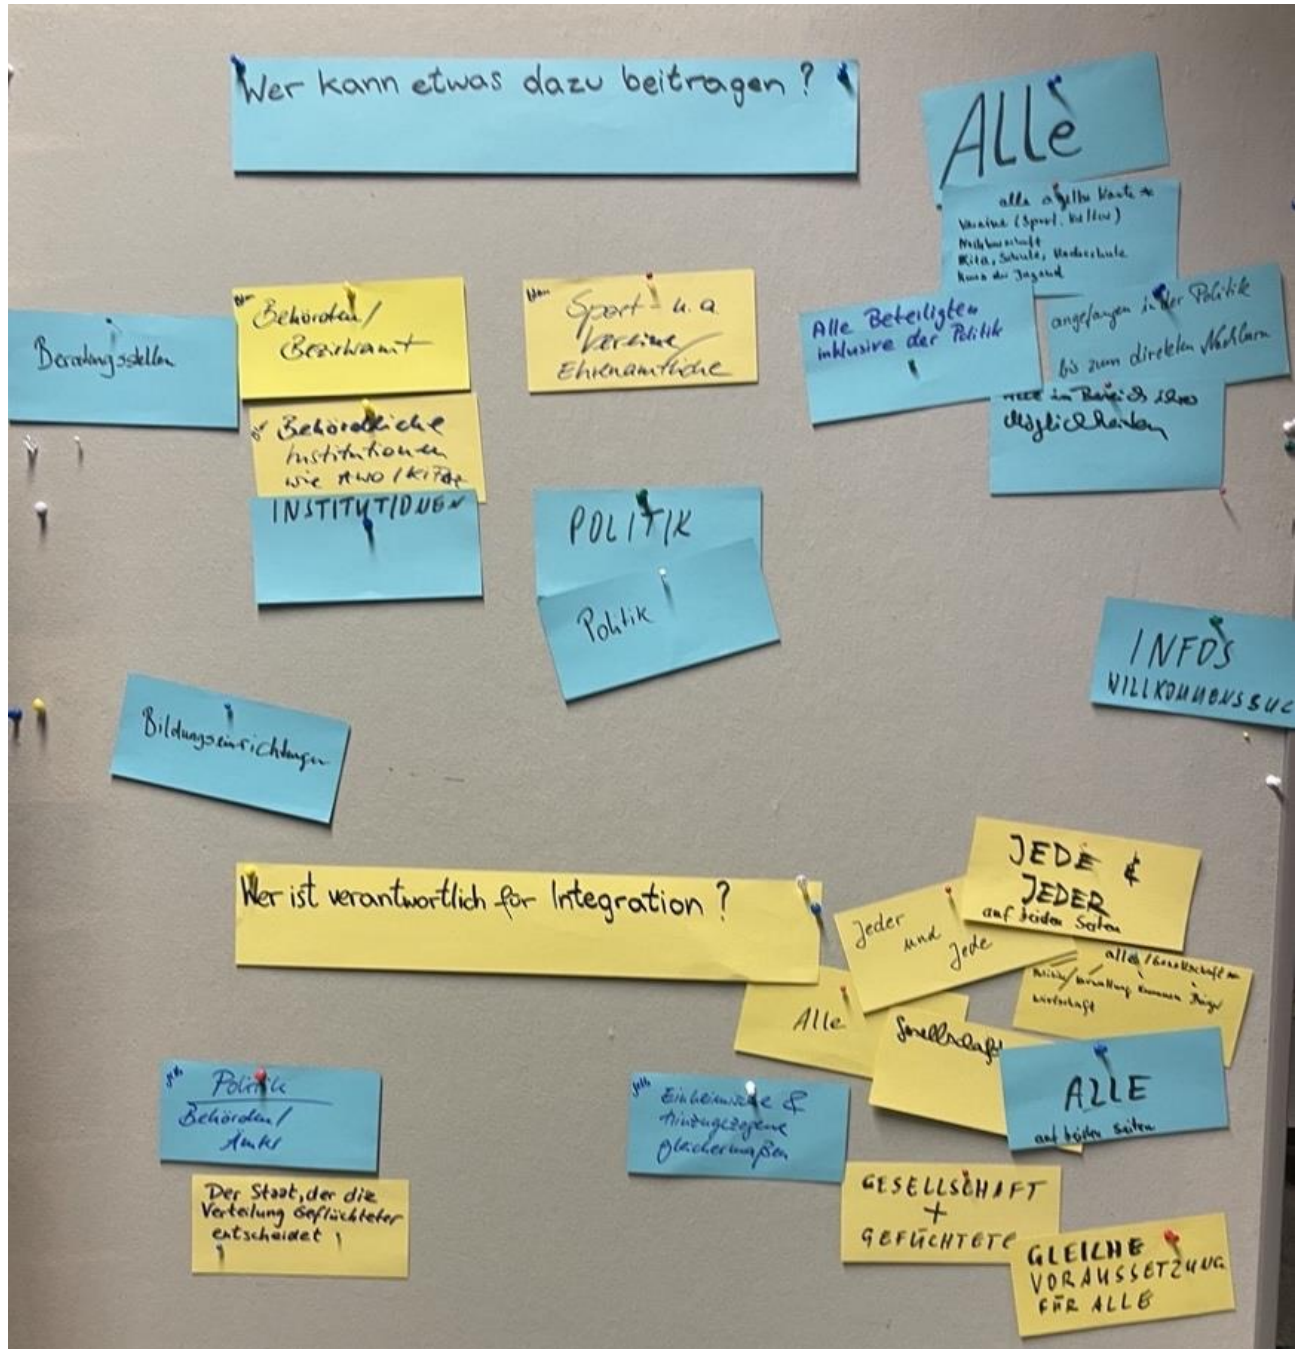 Wer kann etwas dazu beitragen?
ALLE
alle
Vereine (Sport, Kultur)
Nachbarschaft
Kita, Schule, Hochschule
Haus der Jugend
Beratungsstellen
Blau
Behörden/
Bezirksamt
Blau
Sport- u.a.
Vereine/
Ehrenamtliche
Alle Beteiligten
inklusive der Politik
angefangen in der Politik
bis zum direkten Nachbarn
Behördliche
Institutionen
wie AWO/KiTas
Alle im Bereich ihrer
Möglichkeiten
INSTITUTIONEN
POLITIK
Politik
INFOS
WILLKOMMENSBUC
Bildungseinrichtungen
Wer ist verantwortlich für Integration?
JEDE &
JEDER
auf beiden Seiten
Jeder
und
Jede
alle/Gesellschaft
Politik/Verwaltung Kommunen Bürger
Wirtschaft
Alle
Gesellschaft
ALLE
auf beiden Seiten
gelb
Politik
Behörden/
Ämter
gelb
Einheimische &
Hinzugezogene
gleichermaßen
Der Staat, der die
Verteilung Geflüchteter
entscheidet
GESELLSCHAFT
+
GEFÜCHTETE
GLEICHE
VORAUSSETZUNG
FÜR ALLE